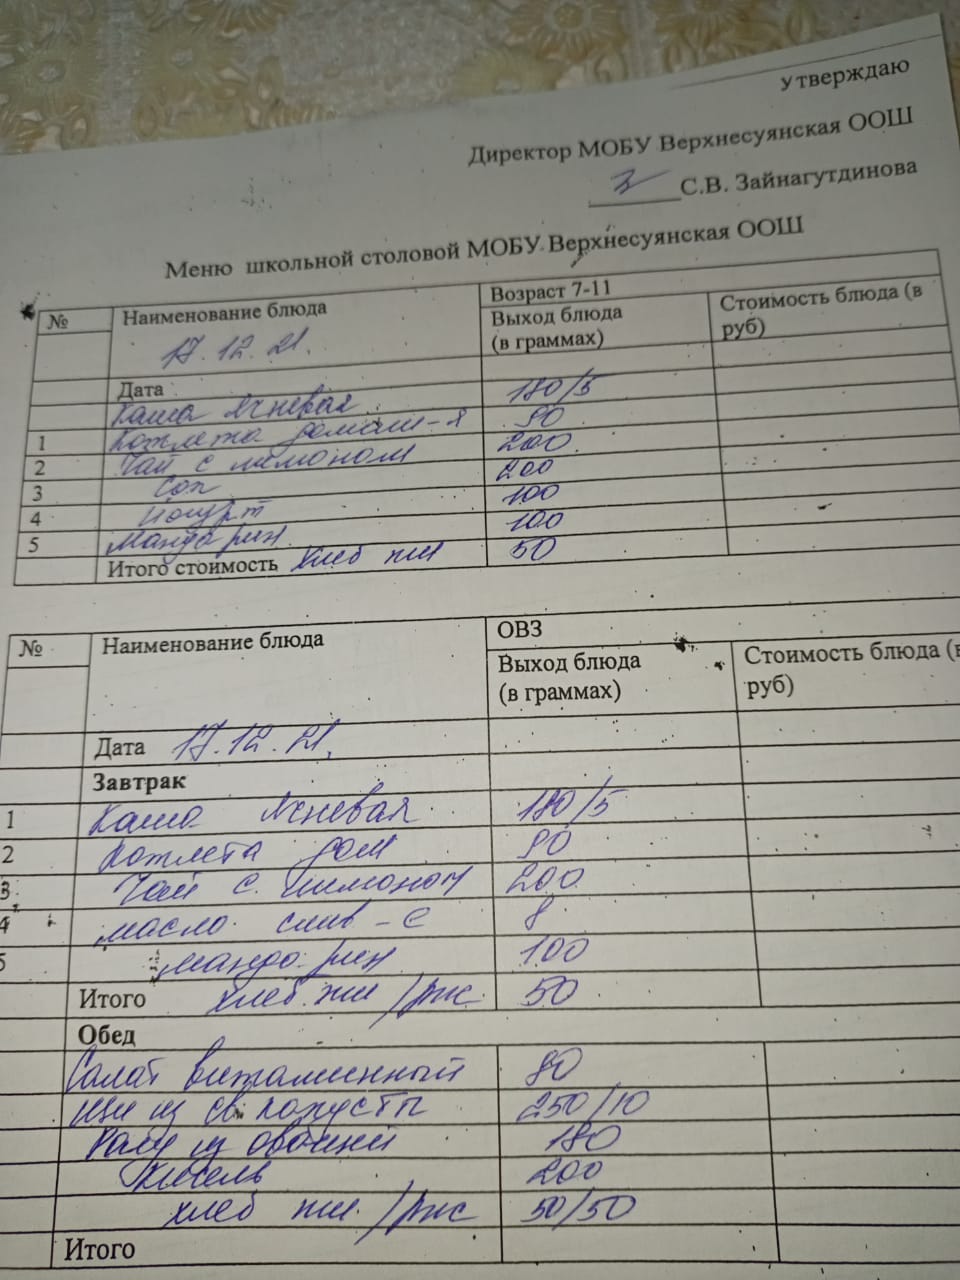 Утверждаю
Директор МОБУ Верхнесуянская ООШ
С.В. Зайнагутдинова
Меню школьной столовой МОБУ Верхнесуянская ООШ
№ Наименование блюда Возраст 7-11
17.12.21. Выход блюда (в граммах) Стоимость блюда (в руб)
Дата
Каша ячневая 180/5
1 Котлета домаш-я 90
2 Чай с лимоном 200
3 Сок 200
4 Йогурт 100
5 Мандарин 100
Итого стоимость хлеб пш 50
№ Наименование блюда ОВЗ
Выход блюда (в граммах) Стоимость блюда (в руб)
Дата 17.12.21.
Завтрак
1 Каша ячневая 180/5
2 Котлета дом 90
3 Чай с лимоном 200
4 масло слив-е 8
5 мандарин 100
Итого хлеб пш/рж 50
Обед
Салат витаминный 80
Щи из св капусты 250/10
Рагу из овощей 180
Кисель 200
хлеб пш/рж 50/50
Итого